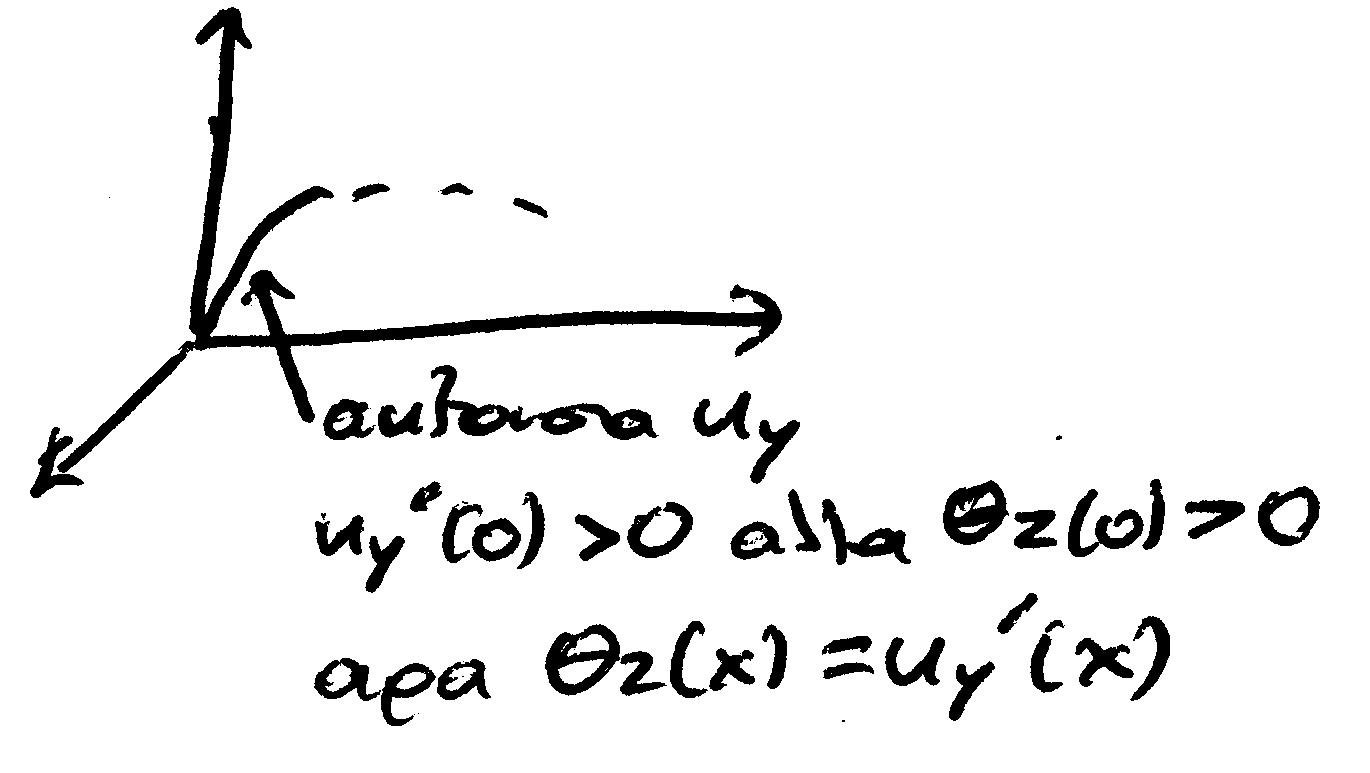 αυξουσα u_y
u_y'(0) >0 αλλα θ_z(0) >0
αρα θ_z(x) = u_y'(x)